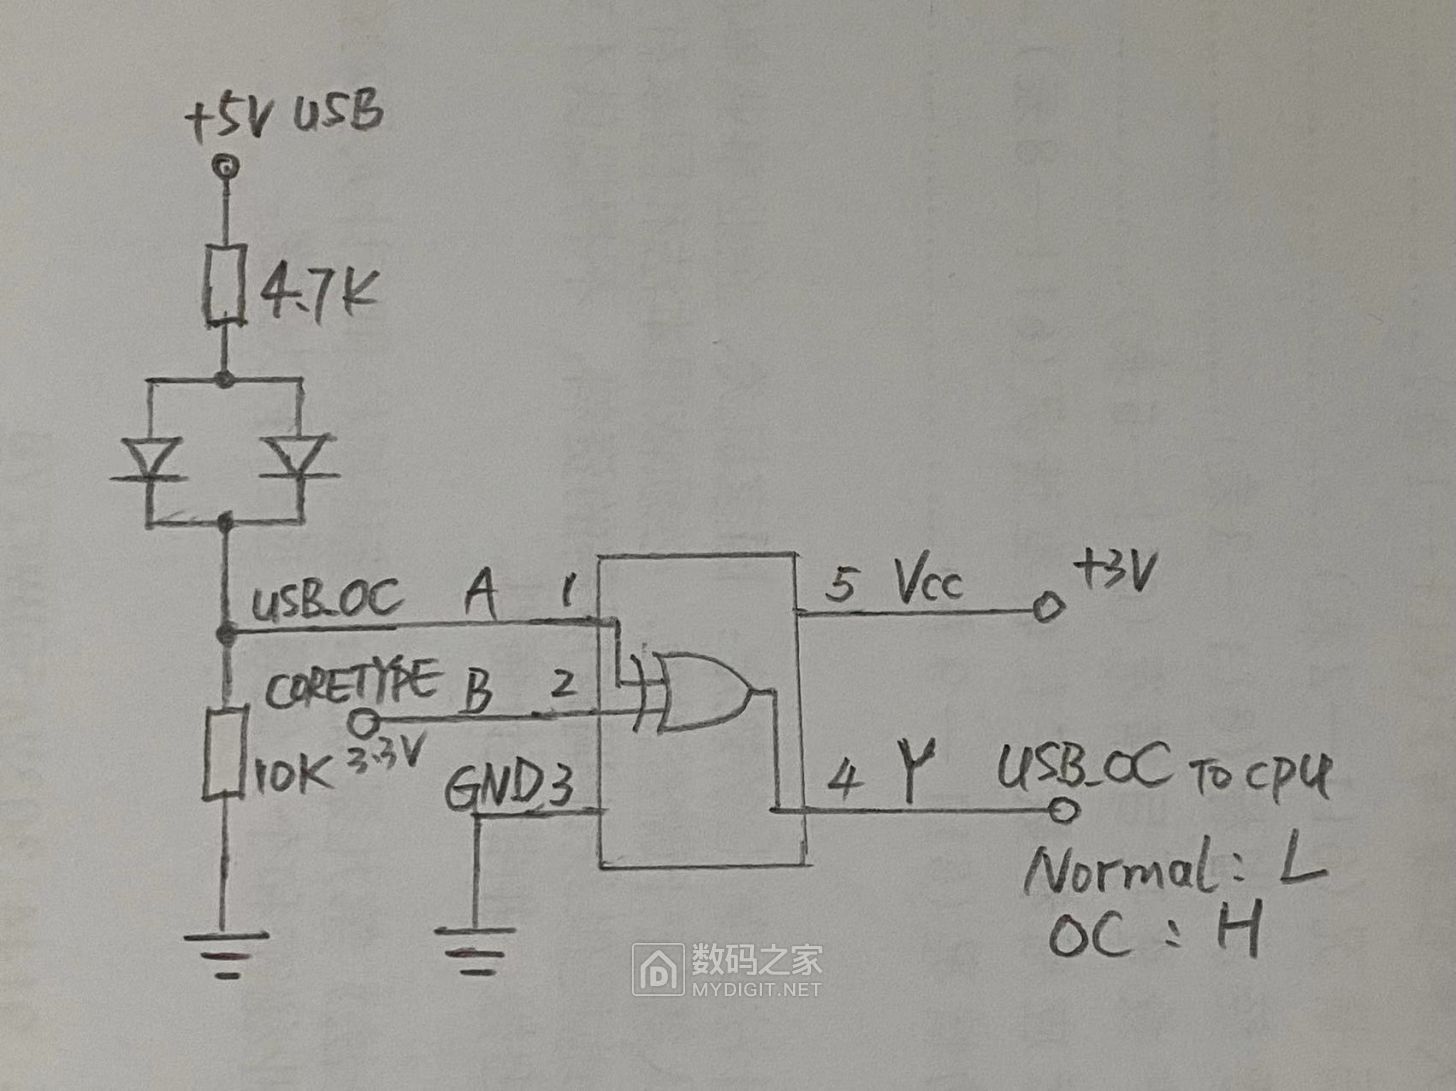 +5V USB
4.7K
USB_OC A 1
5 Vcc +3V
CORETYPE B 2
3.3V
10K
GND 3
4 Y USB_OC TO CPU
Normal: L
OC : H
数码之家
MYDIGIT.NET